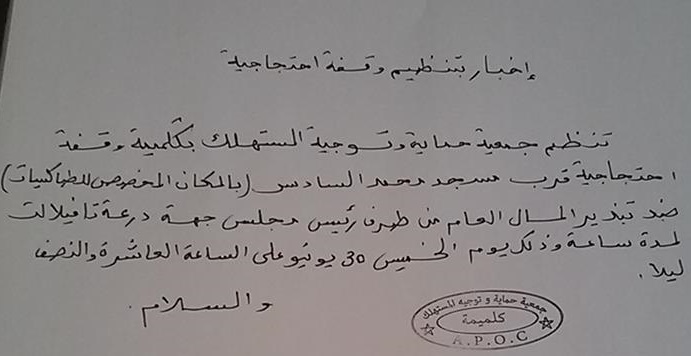 إخبار بتنظيم وقفة احتجاجية
تنظم جمعية حماية وتوجية المستهلك بكلميمة وقفة
احتجاجية قرب مسجد محمد السادس (بالمكان المخصص للطاكسيات)
ضد تبذير المال العام من طرف رئيس مجلس جهة درعة تافيلالت
لمدة ساعة وذلك يوم الخميس 30 يونيو على الساعة العاشرة والنصف
ليلا.
والسلام.
جمعية حماية و توجيه المستهلك
كلميمة
A.P.O.C